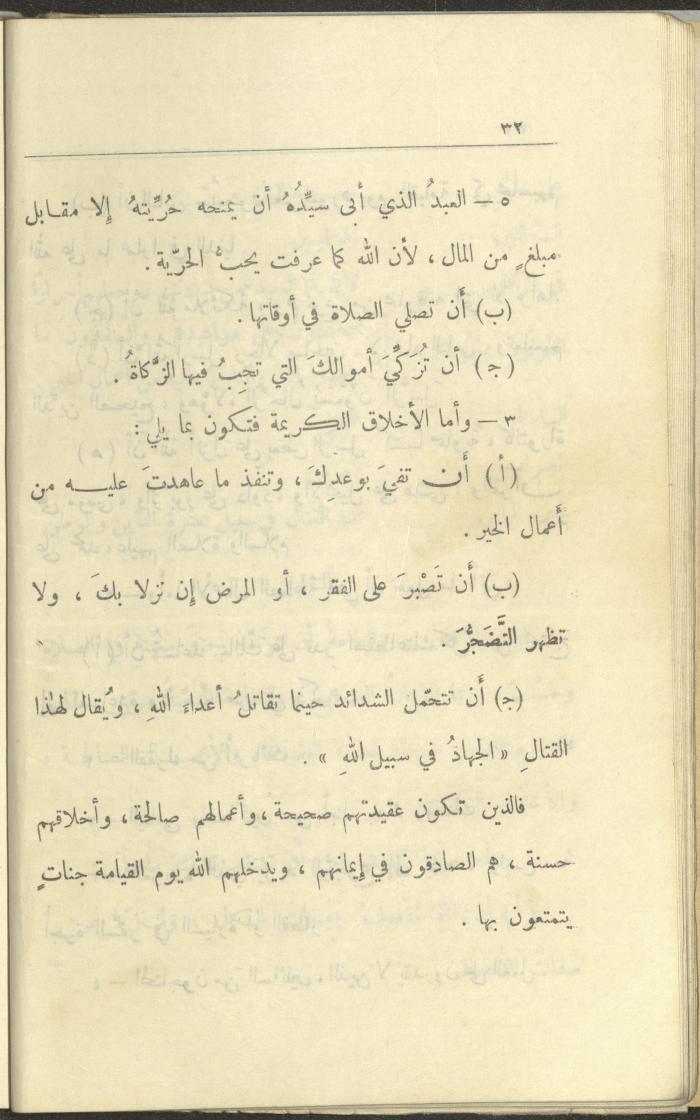 ٣٢
٥ – العبدُ الذي أبى سيِّدُهُ أن يمنحه حُرِّيتهُ إلا مقابل
مبلغٍ من المال ، لأن الله كما عرفت يحبُّ الحرّية .
(ب) أَن تصلي الصلاة في أوقاتها .
(ج) أن تُزَكِّيَ أموالكَ التي تجِبُ فيها الزَّكاةُ .
٣ – وأما الأخلاق الكريمة فتكون بما يلي :
(أ) أَن تفيَ بوعدِكَ ، وتنفذ ما عاهدتَ عليه من
أَعمال الخير .
(ب) أَن تَصْبرَ على الفقر ، أو المرض إِن نزلا بكَ ، ولا
تظهر التَّضَجُّرَ .
(ج) أَن تتحمّل الشدائد حينما تقاتلُ أعداءَ اللهِ ، ويُقال لهٰذا
القتالِ « الجهادُ في سبيل اللهِ » .
فالذين تكون عقيدتهم صحيحة ، وأعمالهم صالحة ، وأخلاقهم
حسنة ، هم الصادقون في إِيمانهم ، ويدخلهم الله يوم القيامة جناتٍ
يتمتعون بها .